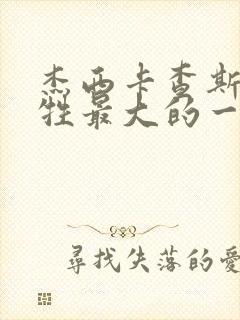 杰西卡查斯
牲最大的一
尋找失落的愛